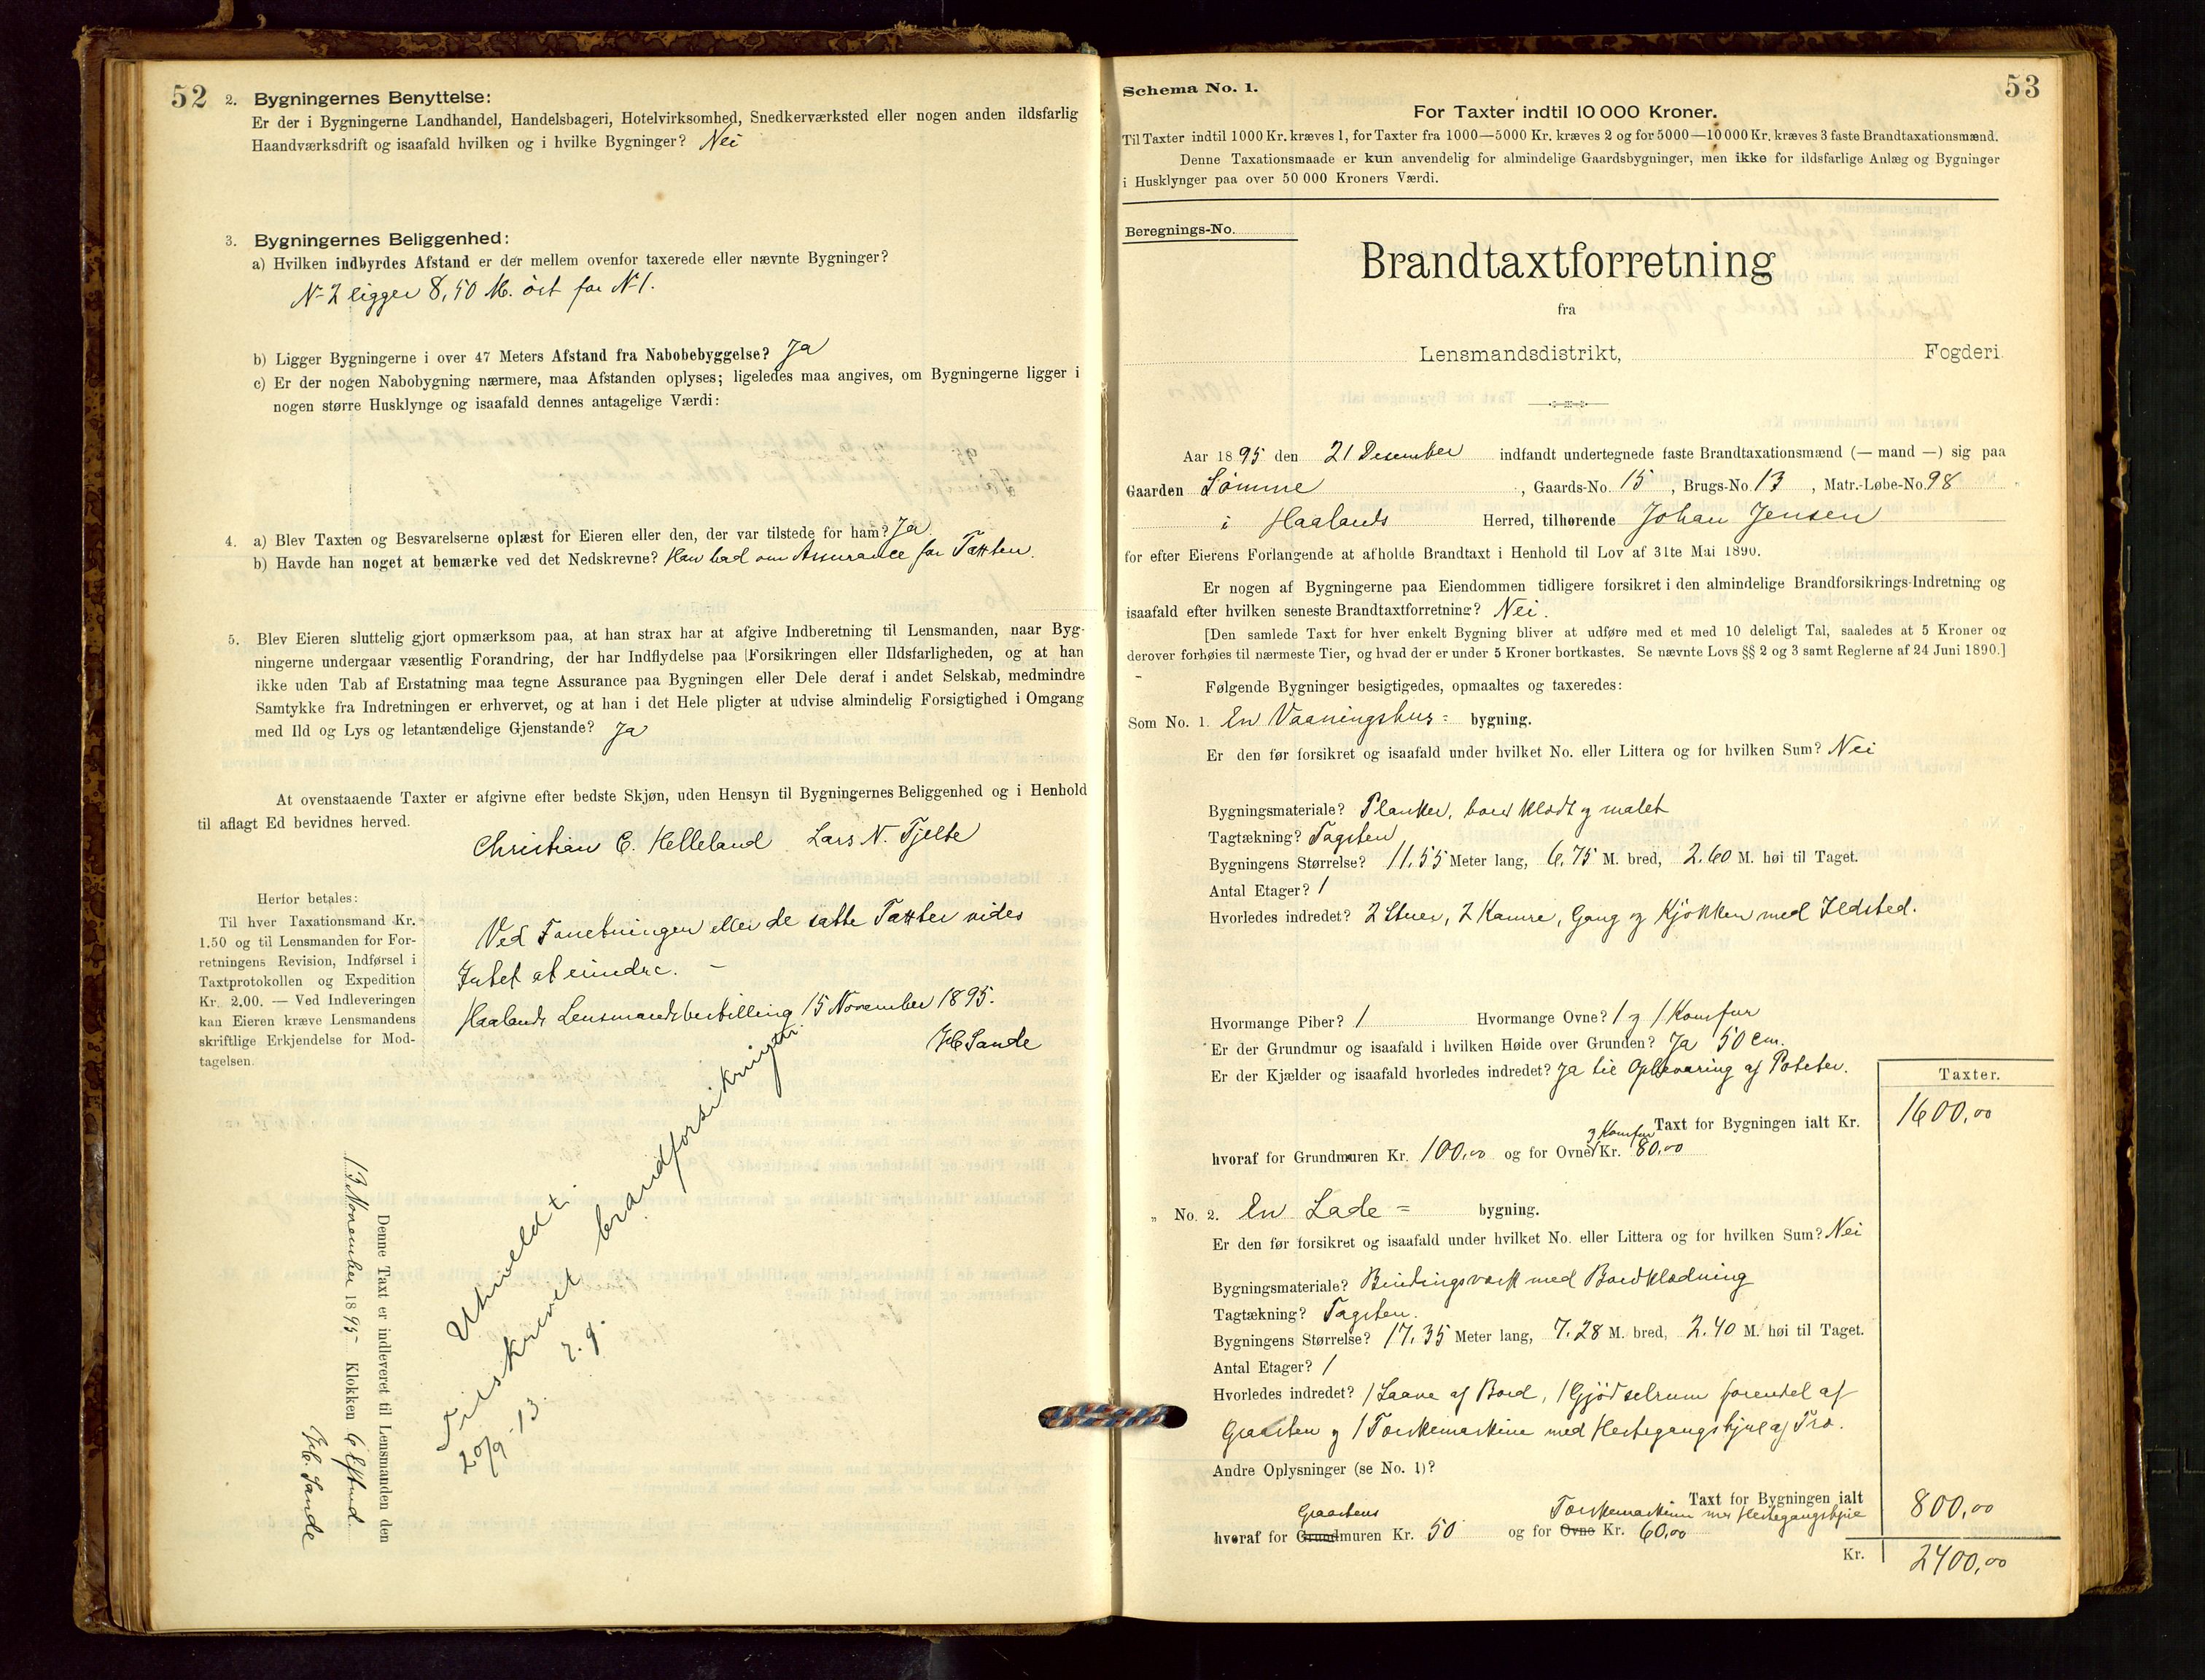 52
2. Bygningernes Benyttelse:
Er der i Bygningerne Landhandel, Handelsbageri, Hotelvirksomhed, Snedkerværksted eller nogen anden ildsfarlig
Haandværksdrift og isaafald hvilken og i hvilke Bygninger? Nei
3. Bygningernes Beliggenhed:
a) Hvilken indbyrdes Afstand er der mellem ovenfor taxerede eller nævnte Bygninger?
N 2 ligger 8,50 M. öst for N 1.
b) Ligger Bygningerne i over 47 Meters Afstand fra Nabobebyggelse? Ja
c) Er der nogen Nabobygning nærmere, maa Afstanden oplyses; ligeledes maa angives, om Bygningerne ligger i
nogen større Husklynge og isaafald dennes antagelige Værdi:
4. a) Blev Taxten og Besvarelserne oplæst for Eieren eller den, der var tilstede for ham? Ja.
b) Havde han noget at bemærke ved det Nedskrevne? Han bad om Assurance for Taxten.
5. Blev Eieren sluttelig gjort opmærksom paa, at han strax har at afgive Indberetning til Lensmanden, naar Byg-
ningerne undergaar væsentlig Forandring, der har Indflydelse paa Forsikringen eller Ildsfarligheden, og at han
ikke uden Tab af Erstatning maa tegne Assurance paa Bygningen eller Dele deraf i andet Selskab, medmindre
Samtykke fra Indretningen er erhvervet, og at han i det Hele pligter at udvise almindelig Forsigtighed i Omgang
med Ild og Lys og letantændelige Gjenstande? Ja
At ovenstaaende Taxter er afgivne efter bedste Skjøn, uden Hensyn til Bygningernes Beliggenhed og i Henhold
til aflagt Ed bevidnes herved.
Christian C. Helleland Lars N. Tjelte
Herfor betales:
Til hver Taxationsmand Kr.
1.50 og til Lensmanden for For-
retningens Revision, Indførsel i
Taxtprotokollen og Expedition
Kr. 2.00. — Ved Indleveringen
kan Eieren kræve Lensmandens
skriftlige Erkjendelse for Mod-
tagelsen.
Ved Forretningen eller de satte Taxter vides
Intet at erindre. –
Haalands Lensmandsbestilling 15 November 1895.
Sande
Utmeldt.
Tilsskrevet brandforsikringstr.
20/9-13.
Denne Taxt er indleveret til Lensmanden den
13 November 1895 Klokken 6 Eftmd.
Sande
53
Schema No. 1.
For Taxter indtil 10 000 Kroner.
Til Taxter indtil 1000 Kr. kræves 1, for Taxter fra 1000—5000 Kr. kræves 2 og for 5000—10 000 Kr. kræves 3 faste Brandtaxationsmænd.
Denne Taxationsmaade er kun anvendelig for almindelige Gaardsbygninger, men ikke for ildsfarlige Anlæg og Bygninger
i Husklynger paa over 50 000 Kroners Værdi.
Beregnings-No.
Brandtaxtforretning
fra
Lensmandsdistrikt, Fogderi.
Aar 1895 den 21 Desember indfandt undertegnede faste Brandtaxationsmænd (— mand —) sig paa
Gaarden Sömme, Gaards-No. 15, Brugs-No. 13, Matr.-Løbe-No. 98
i Haalands Herred, tilhørende Johan Jensen
for efter Eierens Forlangende at afholde Brandtaxt i Henhold til Lov af 31te Mai 1890.
Er nogen af Bygningerne paa Eiendommen tidligere forsikret i den almindelige Brandforsikrings-Indretning og
isaafald efter hvilken seneste Brandtaxtforretning? Nei.
[Den samlede Taxt for hver enkelt Bygning bliver at udføre med et med 10 deleligt Tal, saaledes at 5 Kroner og
derover forhøies til nærmeste Tier, og hvad der er under 5 Kroner bortkastes. Se nævnte Lovs §§ 2 og 3 samt Reglerne af 24 Juni 1890.]
Følgende Bygninger besigtigedes, opmaaltes og taxeredes:
Som No. 1. En Vaaningshus= bygning.
Er den før forsikret og isaafald under hvilket No. eller Littera og for hvilken Sum? Nei
Bygningsmateriale? Planker, bordklædt og malet
Tagtækning? Tagsten
Bygningens Størrelse? 11,55 Meter lang, 6,75 M. bred, 2.60 M. høi til Taget.
Antal Etager? 1
Hvorledes indredet? 2 Stuer, 2 Kamre, Gang og Kjøkken med Ildsted.
Hvormange Piber? 1 Hvormange Ovne? 1 og 1 Komfur
Er der Grundmur og isaafald i hvilken Høide over Grunden? Ja 50 Cm.
Er der Kjælder og isaafald hvorledes indredet? Ja til Opbevaring af Poteter.
Taxter.
Taxt for Bygningen ialt Kr. 1600,00
og Komfur
hvoraf for Grundmuren Kr. 100,00 og for Ovne Kr. 80,00
„ No. 2. En Lade = bygning.
Er den før forsikret og isaafald under hvilket No. eller Littera og for hvilken Sum? Nei
Bygningsmateriale? Bindingsverk med Bordklædning
Tagtækning? Tagsten.
Bygningens Størrelse? 17,35 Meter lang, 7.28 M. bred, 2.40 M. høi til Taget.
Antal Etager? 1
Hvorledes indredet? 1 Laave af Bord, 1 Gjödselrum forendel af
Graasten og 1 Torskemaskine med Hestegangshjul af Træ.
Andre Oplysninger (se No. 1)?
Taxt for Bygningen ialt 800,00
Graastens Torskemaskine med Hestegangshjul
hvoraf for Grundmuren Kr. 50 og for Ovne Kr. 60,00
Kr. 2400,00